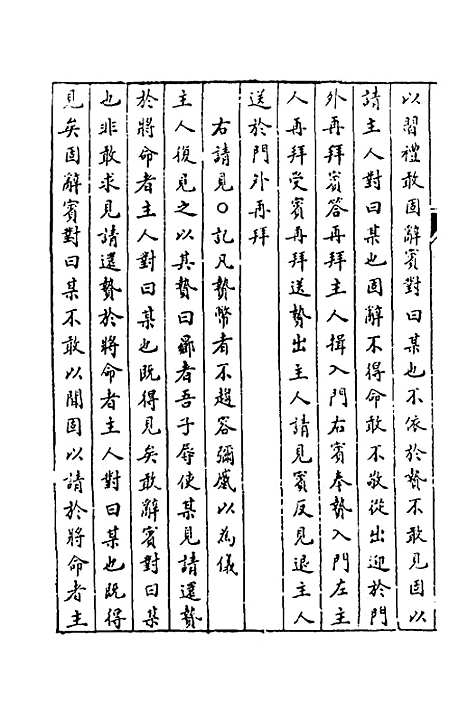 以習禮敢固辭賓對曰某也不依於贄不敢見固以
請主人對曰某也固辭不得命敢不敬從出迎於門
外再拜賓答再拜主人揖入門右賓奉贄入門左主
人再拜受賓再拜送贄出主人請見賓反見退主人
送於門外再拜
右請見○記凡贄幣者不趨容彌蹙以為儀
主人復見之以其贄曰曏者吾子辱使某見請還贄
於將命者主人對曰某也既得見矣敢辭賓對曰某
也非敢求見請還贄於將命者主人對曰某也既得
見矣固辭賓對曰某不敢以聞固以請於將命者主